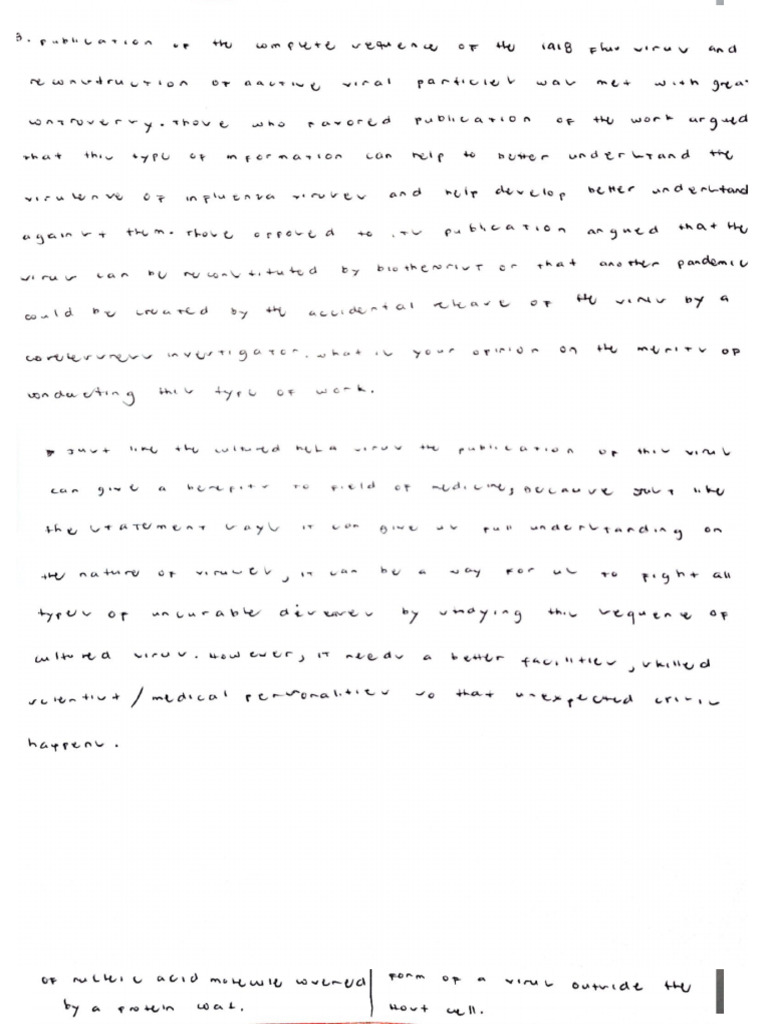 3. Publication of the complete sequence of the 1918 Flu virus and
reconstruction of aactive viral particles was met with grea
controversy. Those who favored publication of the work argued
that this type of information can help to better understand the
virulence of influenza viruses and help develop better understand
against them. Those opposed to its publication argued that the
virus can be reconstituted by bioterrorist or that another pandemic
could be created by the accidental release of the virus by a
investigator. What is your opinion on the merits of
conducting this type of work.
Just like the cultured hela virus the publication of this viral
can give a benefits to field of medicine, because just like
the statement says it can give us full understanding on
the nature of viruses, it can be a way for us to fight all
types of uncurable diseases by studying this sequence of
cultured virus. However, it needs a better facilities, skilled
scientist / medical personalities so that unexpected crisis
happens.
of nucleic acid molecule covered
by a protein coat.
form of a virus outside the
host cell.